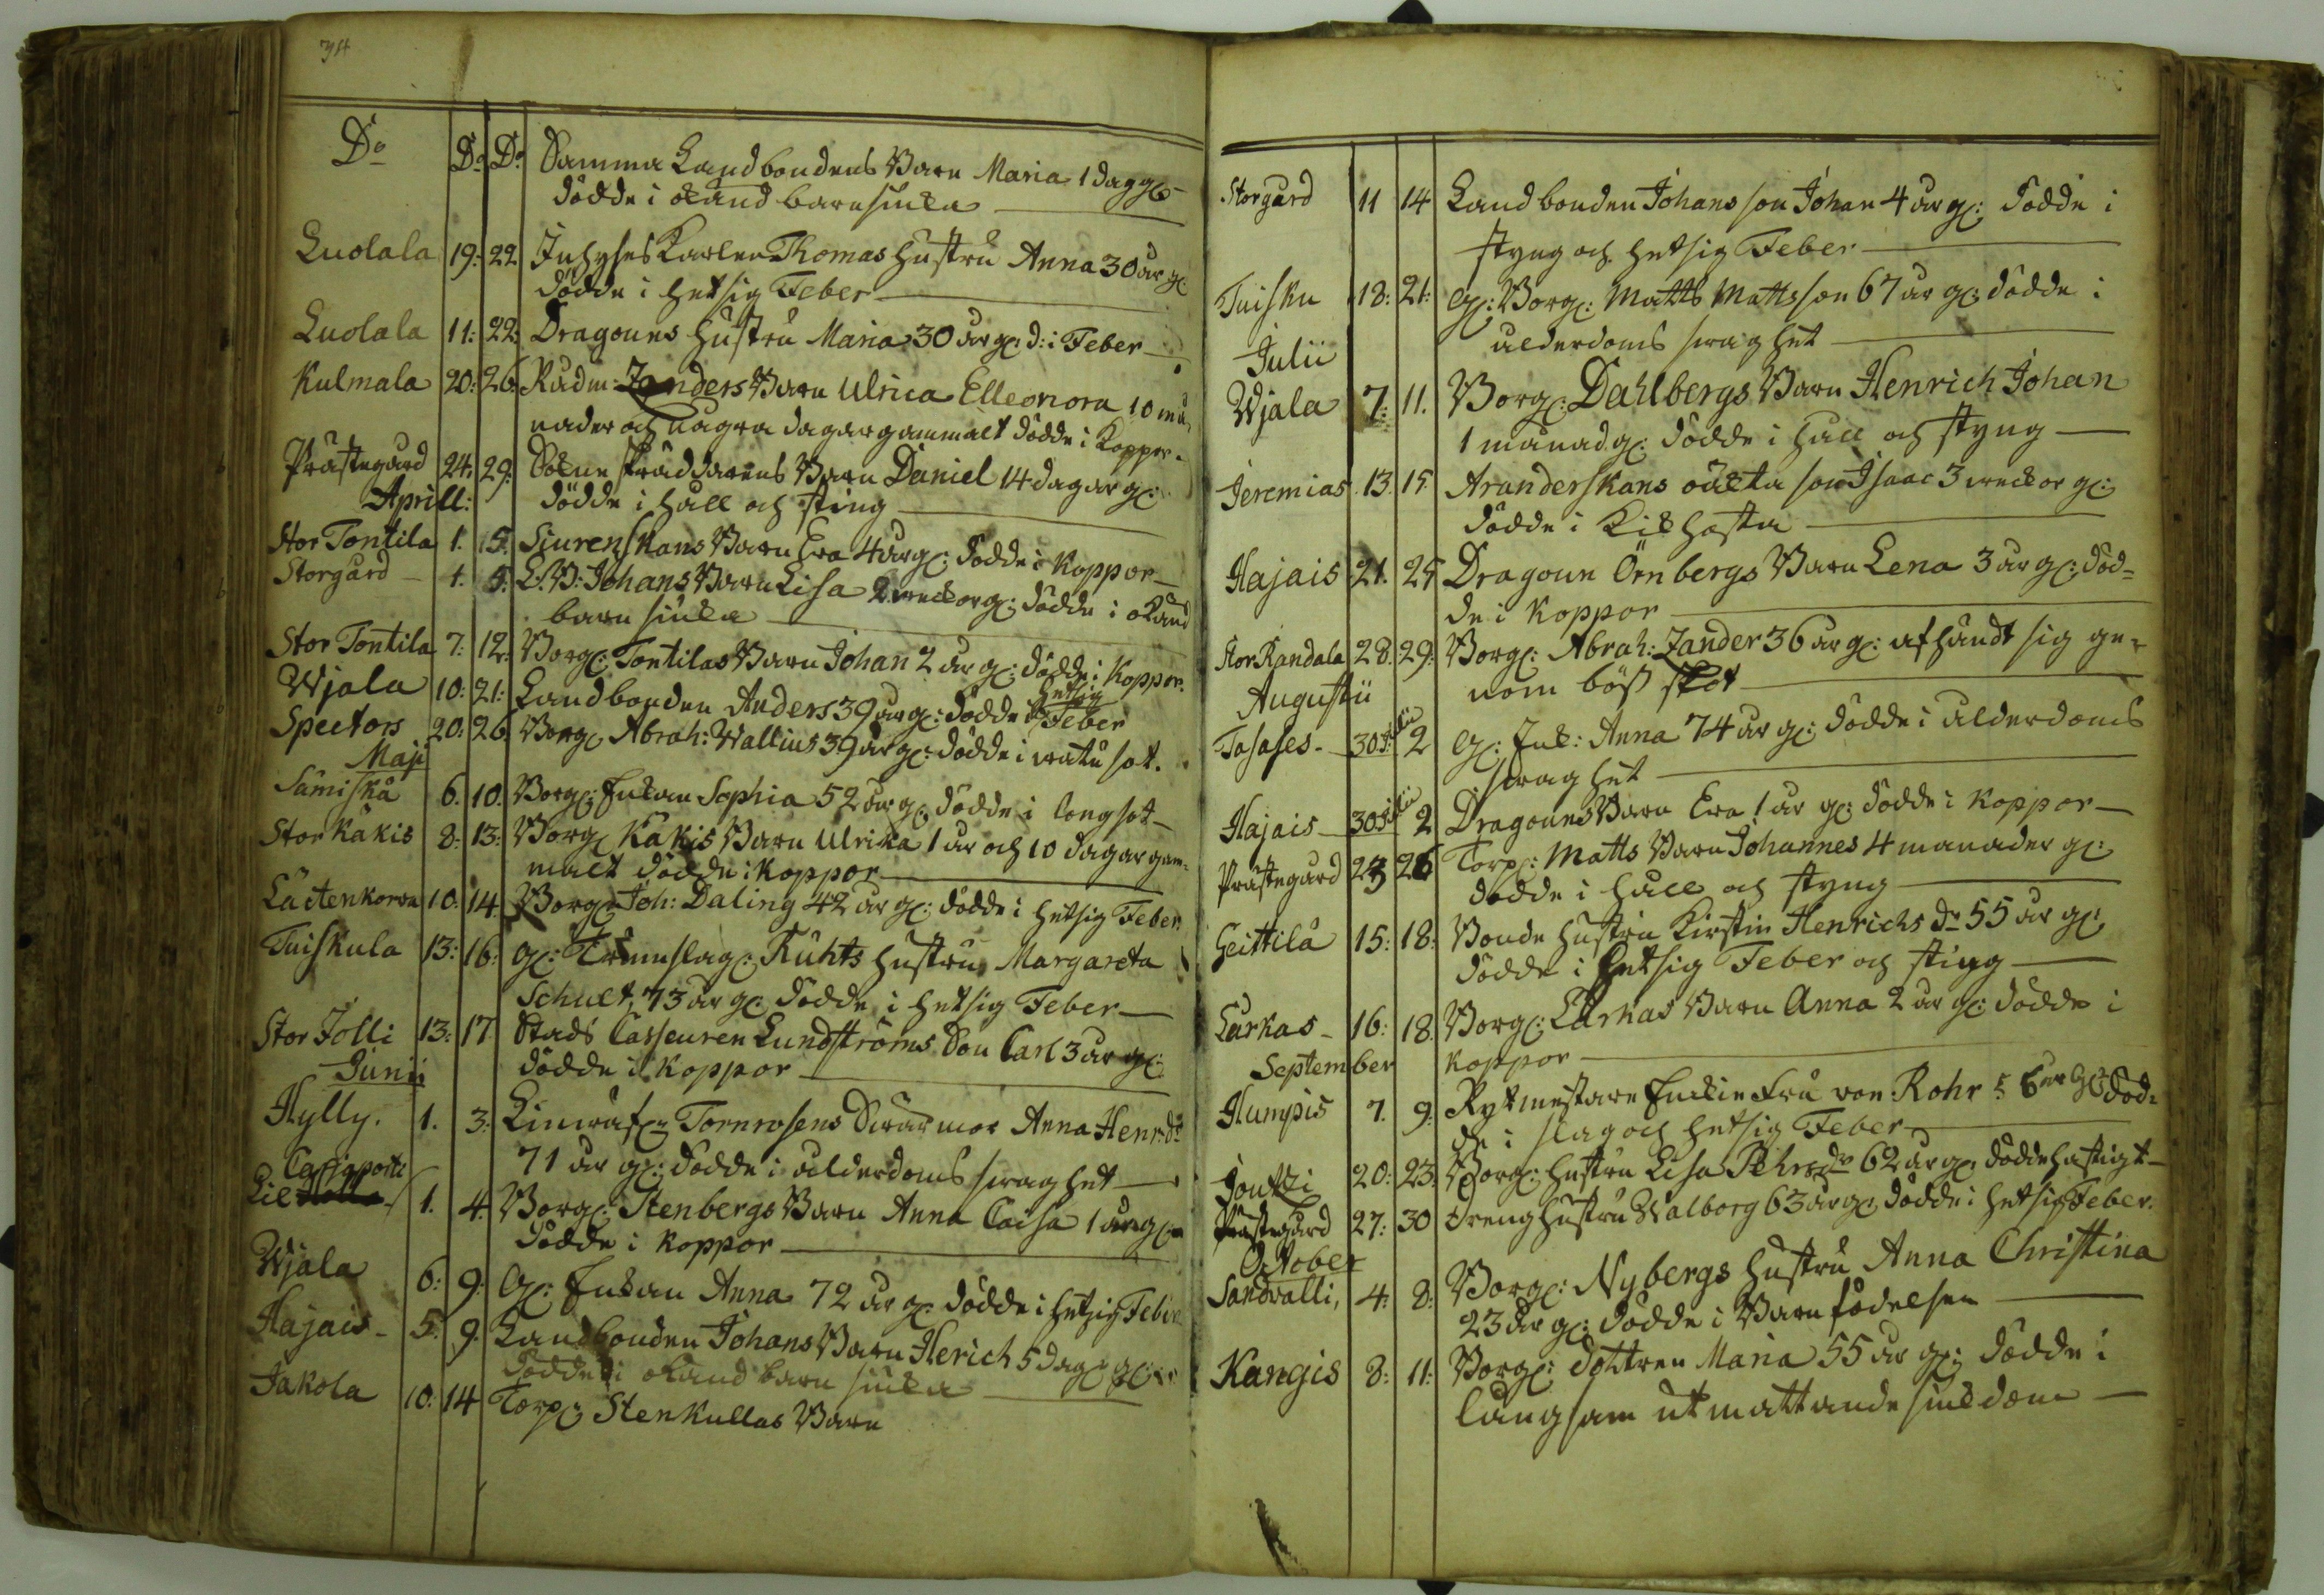 74
Do Do Do Samma Landbondens Barn Maria 1 dag gl:
dödde i okänd barnsiuka
Luolala 19: 22. Inhyses Karlen Thomas hustru Anna 30 år gl:
dödde i hetsig Feber
Luolala 11: 22: Dragouns hustru Maria 30 år gl: d: i Feber
Kulmala 20: 26. Rådm: Zanders Barn Ulrica Elleonora 10 må,
nader och några dagar gammalt dödde i Koppor.
Prästegård 24: 29: Sokne skräddarens Barn Daniel 14 dagar gl:
Aprill: dödde i håll och sting
Stor Tontila 1. 5. Siurenskans Barn Eva 4 år gl: dödde i Koppor
Storgård 1. 5: L: B: Johans Barn Lisa 2 weckor gl: dödde i okänd
barn siuka
Stor Tontila 7: 12: Borg: Tontilas Barn Johan 2 år gl: dödde i Koppor.
Wjala 10: 21: Landbonden Anders 39 år gl: dödde i hetsig Feber
Spectors 20: 26. Borg: Abrah: Wallius 39 år gl: dödde i watu sot.
Maji
Sämiskä 6. 10. Borg: Enkan Sophia 52 år gl: dödde i longsot
Stor Käkis 8: 13: Borg: Käkis Barn Ulrika 1 år och 10 dagar gam-
malt dödde i Koppor
10: 14 Borg: Joh: Daling 42 år gl: dödde i hetsig Feber.
Tuiskula 13: 16: gl: Trumslag: Ruhts hustru Margareta
Schult, 73 år gl: dödde i hetsig Feber
Stor Jolli 13: 17 Stads Casseuren Lundströms Son Carl 3 år gl:
Junii dödde i Koppor
Hylly. 1. 3: Linwäf: Tornrosens Swärmor Anna Henrsdr
71 år gl: dödde i ålderdoms swaghet
1. 4. Borg: Stenbergs Barn Anna Caisa 1 år gl:
dödde i Koppor
Wjala 6: 9: Gl: Enkan Anna 72 år gl: dödde i hetsig Feber
Hajais 5. 9. Landbonden Johans Barn Herich 5 dag: gl:
dödde i okänd barn siuka
Jakola 10: 14 Torp: Stenkullas Barn
Storgård 11 14 Landbonden Johans son Johan 4 år gl: dödde i
styng och hetsig Feber
Tuisku 18: 21: Gl: Borg: Matts Mattsson 67 år gl: dödde i
Julii ålderdoms swaghet
Wjala 7: 11. Borg: Dahlbergs Barn Henrich Johan
1 månad gl: dödde i håll och styng
Jeremias 13. 15. Aranderskans oäkta son Isaac 3 weckor gl:
dödde i Kikhosta
Hajais 21. 25 Dragoun Örnbergs Barn Lena 3 år gl: död=
de i Koppor
Stor Randala 28. 29: Borg: Abrah: Zander 36 år gl: afhändt sig ge=
Augustii nom böss skot
30 Julii 2 Gl: Enk: Anna 74 år gl: dödde i ålderdoms
swaghet
Hajais 30 Julii 2 Dragouns Barn Eva 1 år gl: dödde i Koppor
Prästegård 23 26 Torp: Matts Barn Johannes 4 månader gl:
dödde i håll och styng
Geittilä 15: 18: Bonde hustru Kirstin Henrichs dr 55 år gl:
dödde i hetsig Feber och sting
Lurkas 16: 18. Borg: Lurkas Barn Anna 2 år gl: dödde i
September Koppor
Humpis 7. 9: Rytmestare Enkie Fru von Rohr 56 år gl: död=
de i slag och hetsig Feber
20: 23. Borg: hustru Lisa Pehrs dr 62 år gl: dödde hastigt
Prästegård 27: 30 Dreng hustru Walborg 63 år gl: dödde i hetsig Feber.
October
Sandvalli, 4: 8: Borg: Nybergs hustru Anna Christina
23 år gl: dödde i Barn födelsen
Kangis 8: 11: Borg: dottren Maria 55 år gl: dödde i
långsam utmattande siukdom